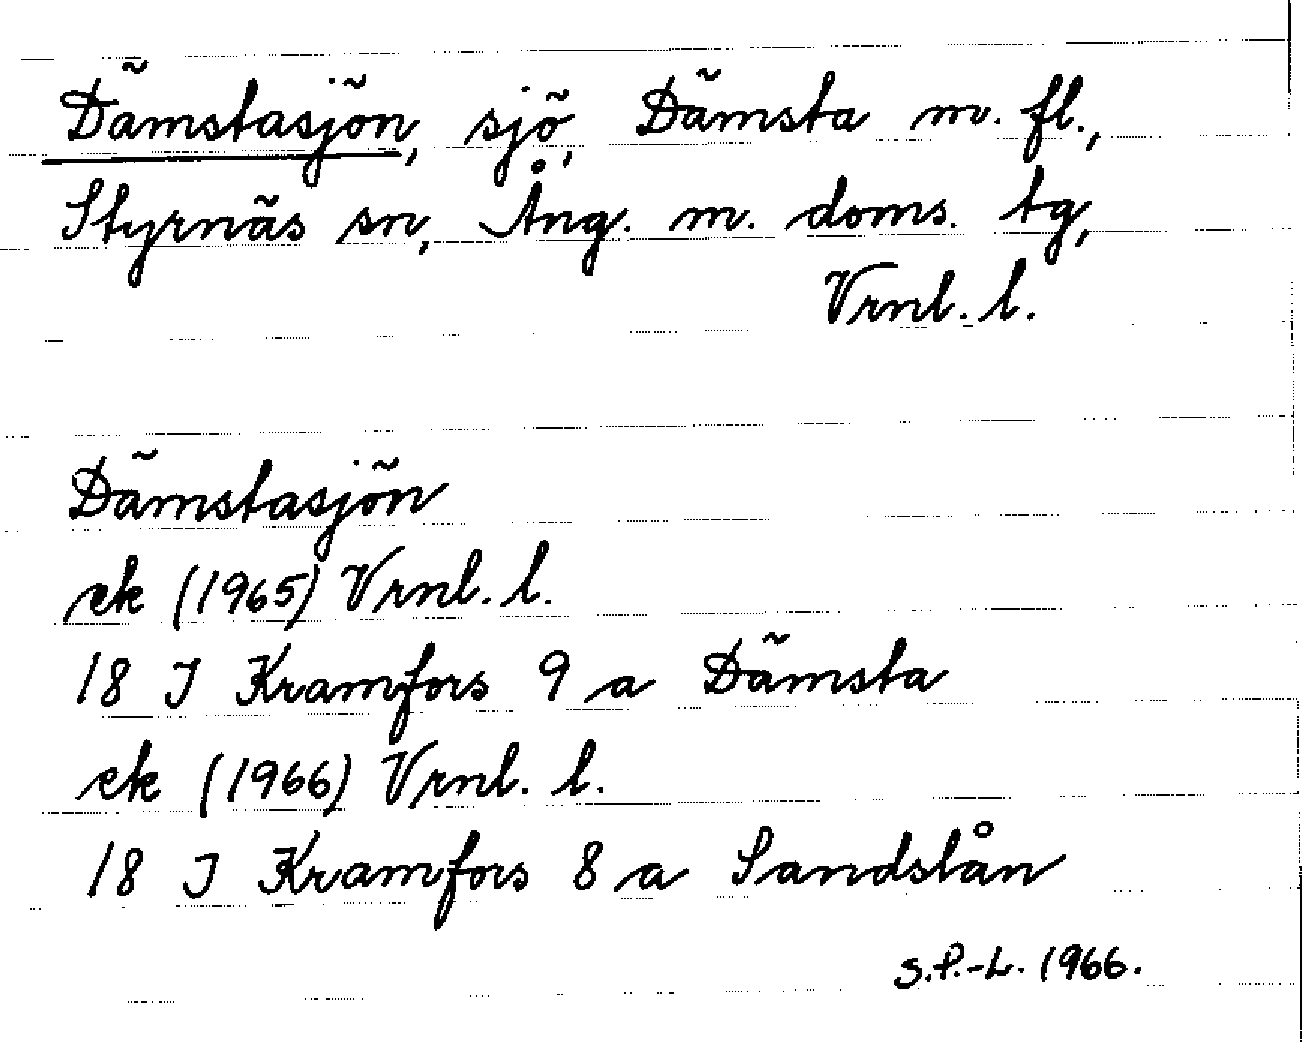 Dämstasjön, sjö, Dämsta m. fl.,
Styrnäs sn, Ång. m. doms. tg,
Vrnl. l.
Dämstasjön
ek (1965) Vrnl. l.
18 I Kramfors 9 a Dämsta
ek (1966) Vrnl. l.
18 I Kramfors 8 a Sandslån
S.P.-L. 1966.